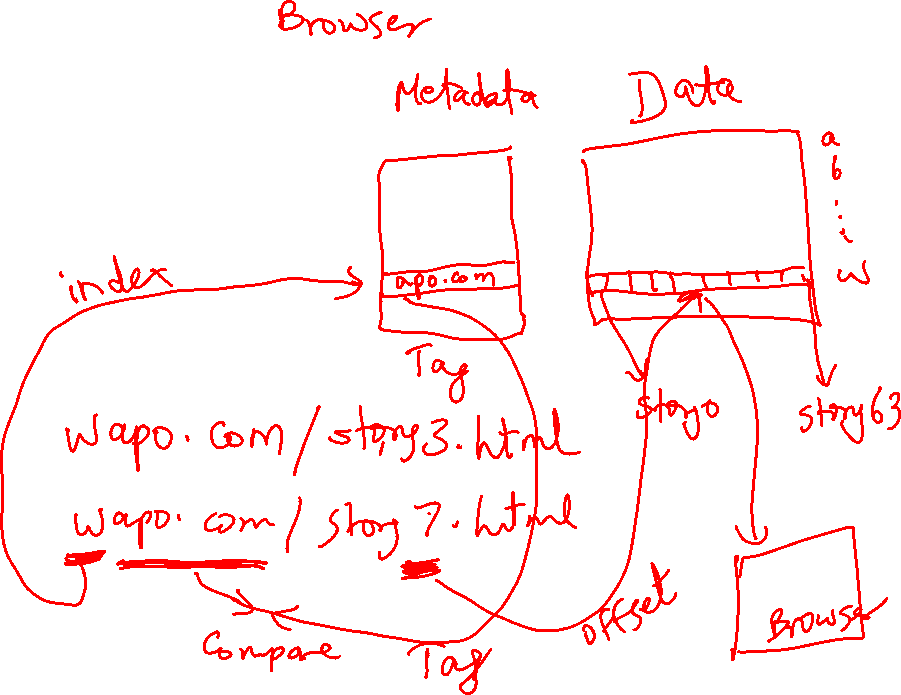 Browser
Metadata
Data
a
b
w
index
apo.com
Tag
story0
story63
wapo.com/story3.html
wapo.com/story7.html
offset
Browser
Compare
Tag